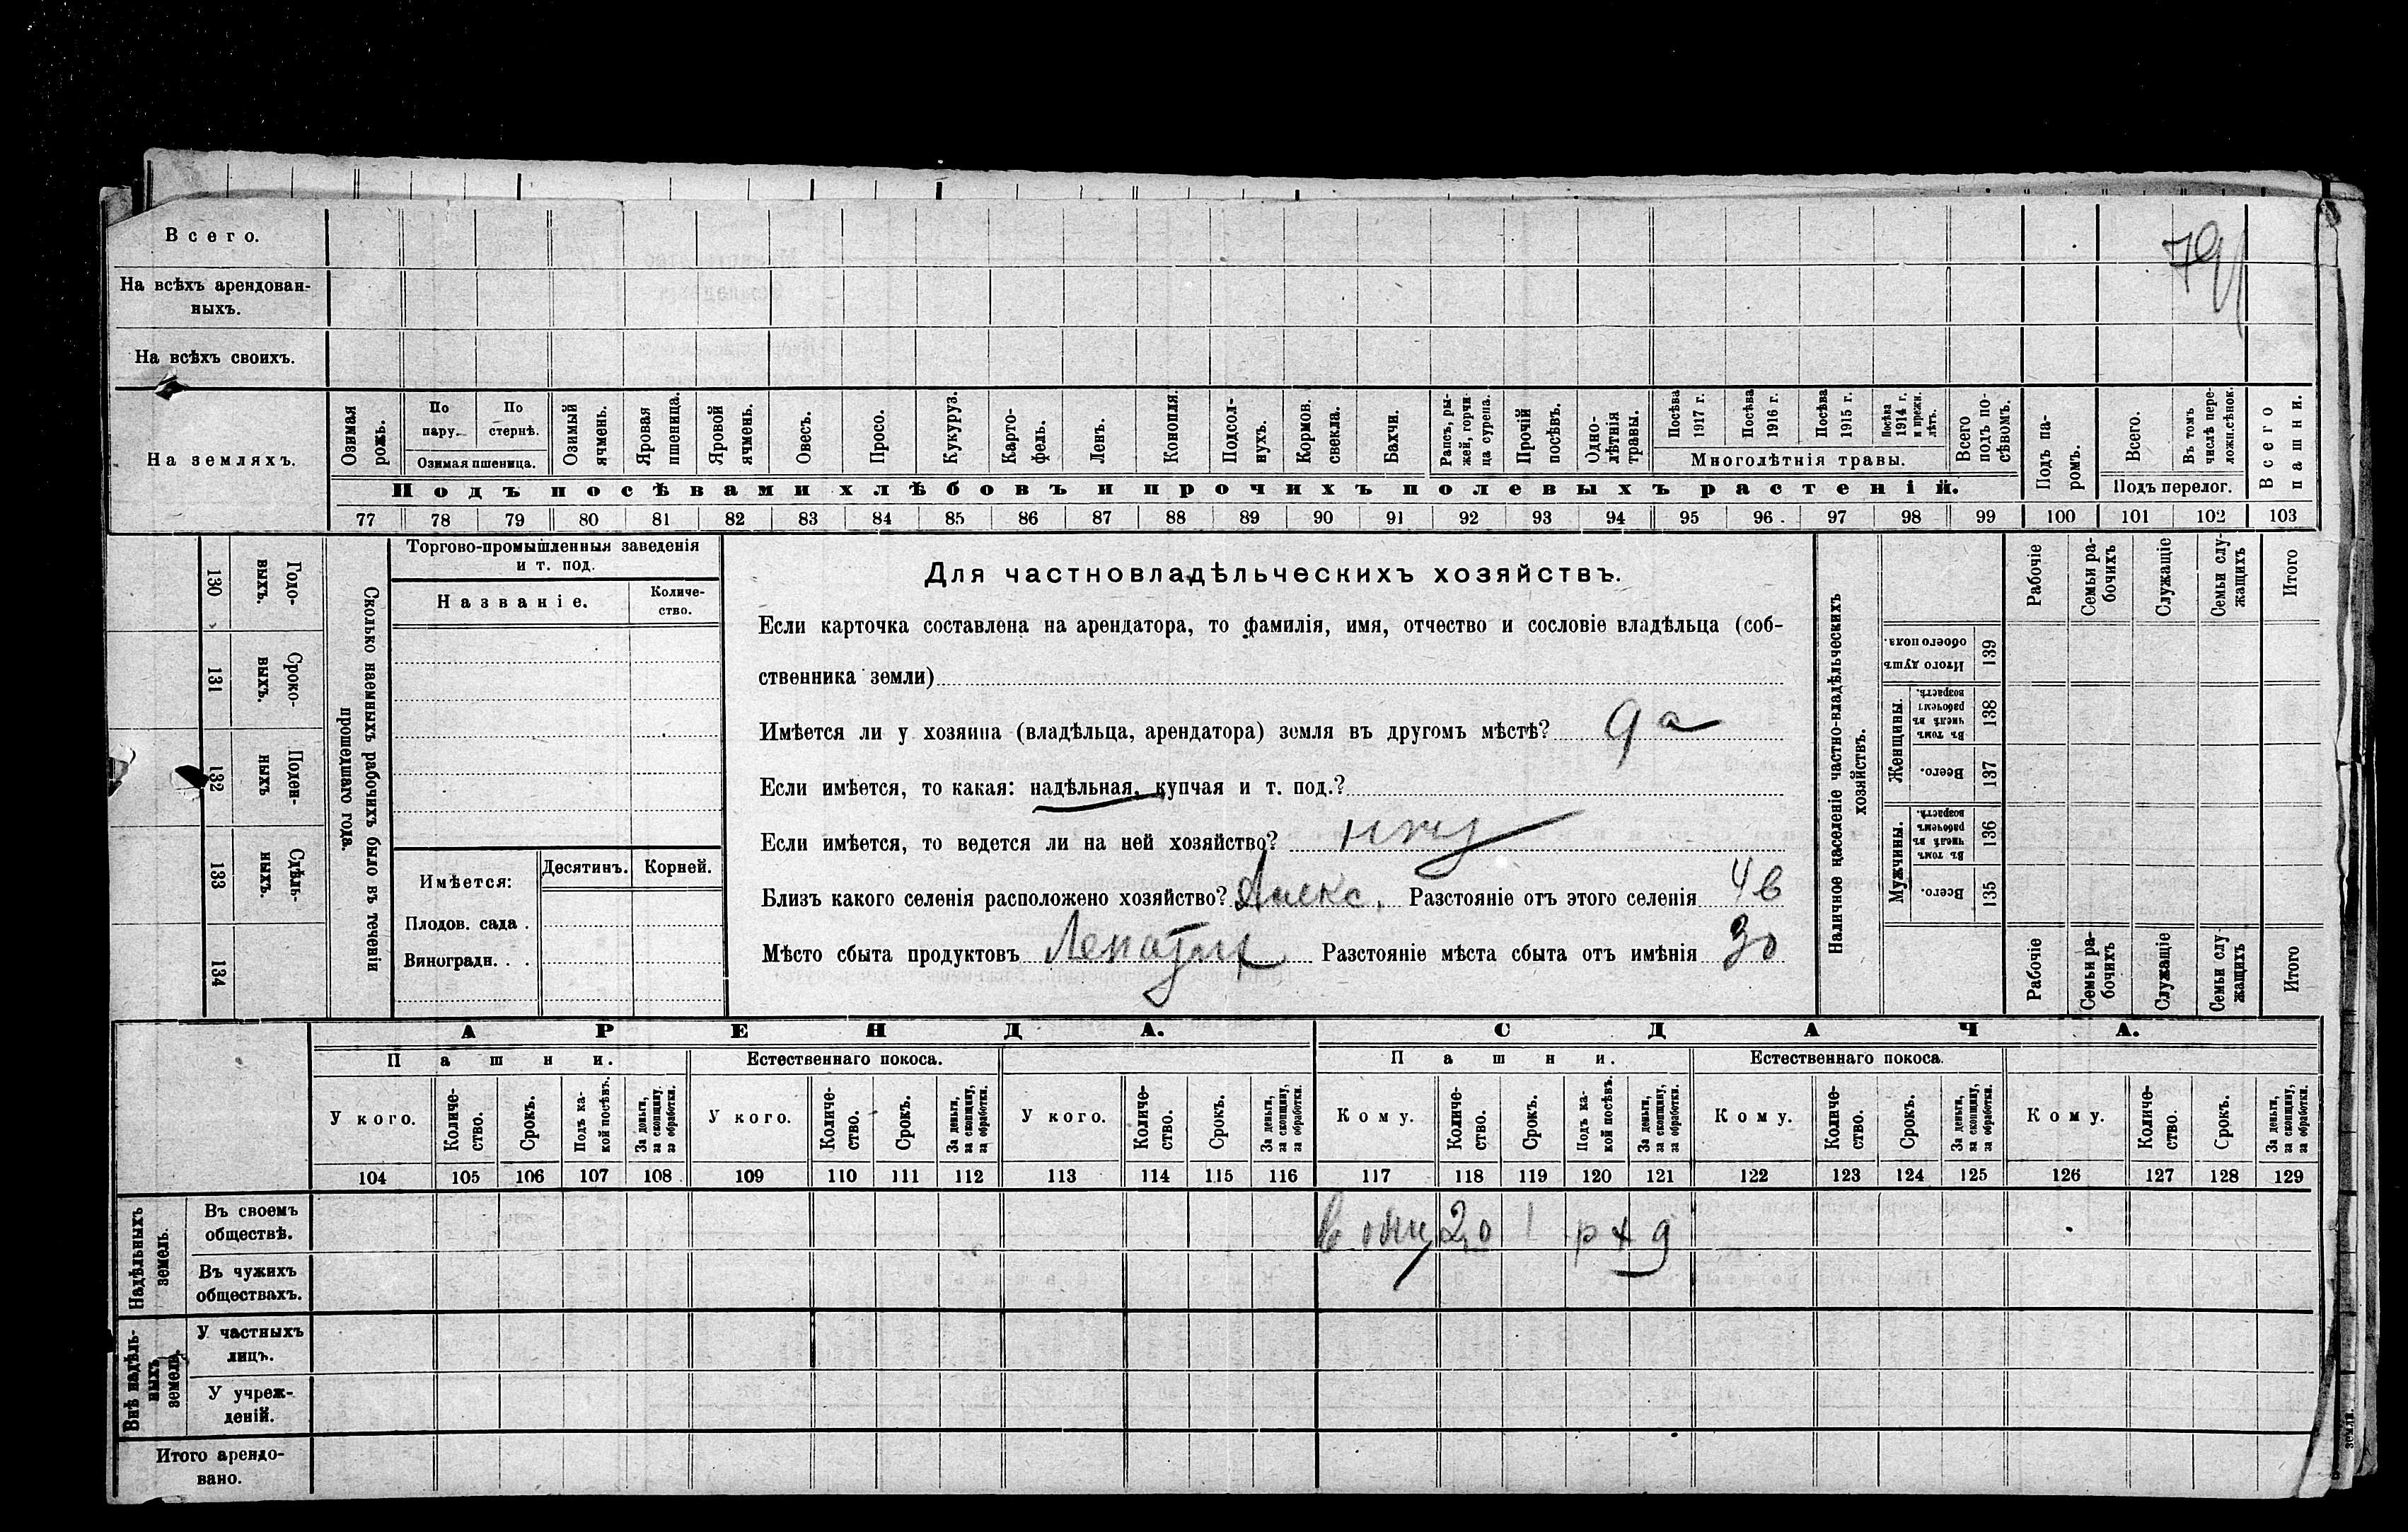 79
Всего.
На всѣхъ арендован-
ныхъ.
На всѣхъ своихъ.
На земляхъ.
Озимая рожь.
По пару.
По стернѣ.
Озимая пшеница.
Озимый ячмень.
Яровая пшеница.
Яровой ячмень.
Овесъ.
Просо.
Кукуруз.
Карто-
фель.
Ленъ.
Конопля.
Подсол-
нухъ.
Кормов. свекла.
Бахчи.
Рапсъ, ры-
жей, горчи
ца сурепа.
Прочій посѣвъ.
Одно-
лѣтнія
травы.
Посѣва 1917 г.
Посѣва 1916 г.
Посѣва 1915 г.
Посѣва 1914 г. и прежн. лѣтъ.
Многолѣтнія травы.
Всего подъ по-
сѣвомъ.
Подъ посѣвами хлѣбовъ и прочихъ полевыхъ растеній.
Подъ па-
ромъ.
Всего.
Въ томъ
числѣ пере-
ложн.сѣнок.
Подъ перелог.
Всего пашни.
77 78 79 80 81 82 83 84 85 86 87 88 89 90 91 92 93 94 95 96 97 98 99 100 101 102 103
130 Годо-
выхъ.
131 Сроко-
выхъ.
132 Поден-
ныхъ
133 Сдѣль-
ныхъ.
134
Сколько наемныхъ рабочихъ было въ теченіи
прошедшаго года.
Торгово-промышленныя заведенія
и т. под.
Названіе.
Количе-
ство.
Имѣется:
Десятинъ.
Корней.
Плодов. сада .
Виноградн. . .
Для частновладѣльческихъ хозяйствъ.
Если карточка составлена на арендатора, то фамилія, имя, отчество и сословіе владѣльца (соб-
ственника земли)
Имѣется ли у хозяина (владѣльца, арендатора) земля въ другомъ мѣстѣ? да
Если имѣется, то какая: надѣльная, купчая и т. под.?
Если имѣется, то ведется ли на ней хозяйство?
Близъ какого селенія расположено хозяйство? Алекс. Разстояніе отъ этого селенія 4 в
Мѣсто сбыта продуктовъ Разстояніе мѣста сбыта отъ имѣнія 30
Наличное населеніе частно-владѣльческихъ
хозяйствъ.
Рабочіе
Семьи ра-
бочихъ
Служащіе
Семьи слу-
жащихъ
Итого
Итого душъ обоего пола. 139
Женщины.
Въ томъ числѣ въ рабочемъ возрастѣ. 138
Всего. 137
Мужчины.
Въ томъ числѣ въ рабочемъ возрастѣ. 136
Всего. 135
Рабочіе
Семьи ра-
бочихъ
Служащіе
Семьи слу-
жащихъ
Итого
АРЕНДА.
СДАЧА.
Пашни.
Естественнаго покоса.
Пашни.
Естественнаго покоса.
У кого.
Количе-
ство.
Срокъ.
Подъ ка-
кой посѣвъ.
За деньги,
за скопщину,
за обработки.
У кого.
Количе-
ство.
Срокъ.
За деньги,
за скопщину,
за обработки.
У кого.
Количе-
ство.
Срокъ.
За деньги,
за скопщину,
за обработки.
Кому.
Количе-
ство.
Срокъ.
Подъ ка-
кой посѣвъ.
За деньги,
за скопщину,
за обработки.
Кому.
Количе-
ство.
Срокъ.
За деньги,
за скопщину,
за обработки.
Кому.
Количе-
ство.
Срокъ.
За деньги,
за скопщину,
за обработки.
104 105 106 107 108 109 110 111 112 113 114 115 116 117 118 119 120 121 122 123 124 125 126 127 128 129
Надѣльныхъ
земель.
Въ своемъ
обществѣ.
1
Въ чужихъ
обществахъ.
Внѣ надѣль-
ныхъ
земель.
У частныхъ
лицъ.
У учреж-
деній.
Итого арендо-
вано.
земли.